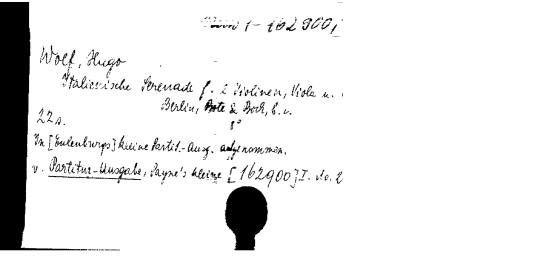 1-162900,
Wolf, Hugo
Italienische Serenade f. 2 Violinen, Viola u.
Berlin, Bote & Bock, o. J.
8°
22 S.
In [Eulenburgs] kleine Partit.-Ausg. aufgenommen.
v. Partitur-Ausgabe, Payne's kleine [162900] I. No. 2